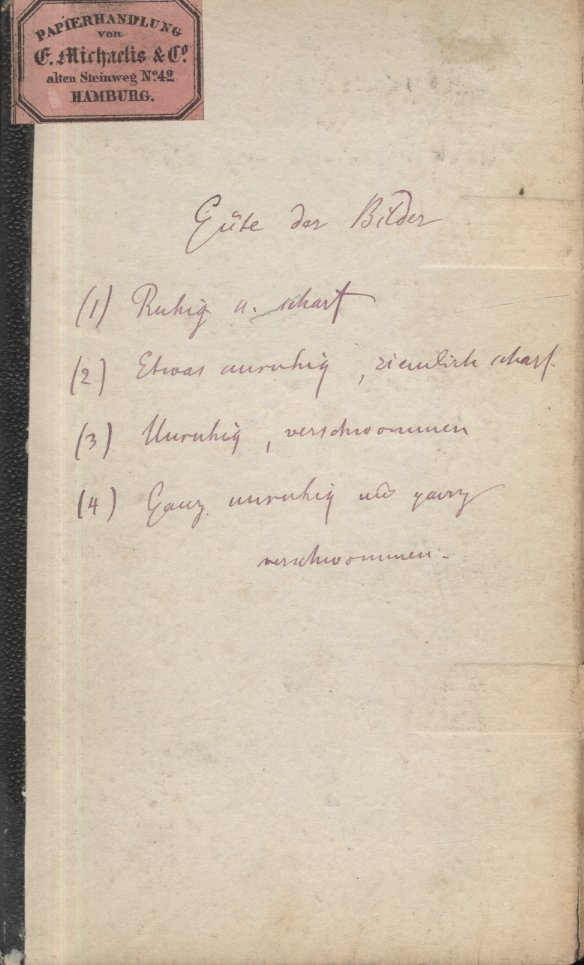 PAPIERHANDLUNG
von
E. Michaelis & Co.
alten Steinweg No. 42
HAMBURG.
Güte der Bilder
(1) Ruhig u. scharf
(2) Etwas unruhig, ziemlich scharf
(3) Unruhig, verschwommen
(4) Ganz unruhig und ganz
verschwommen.